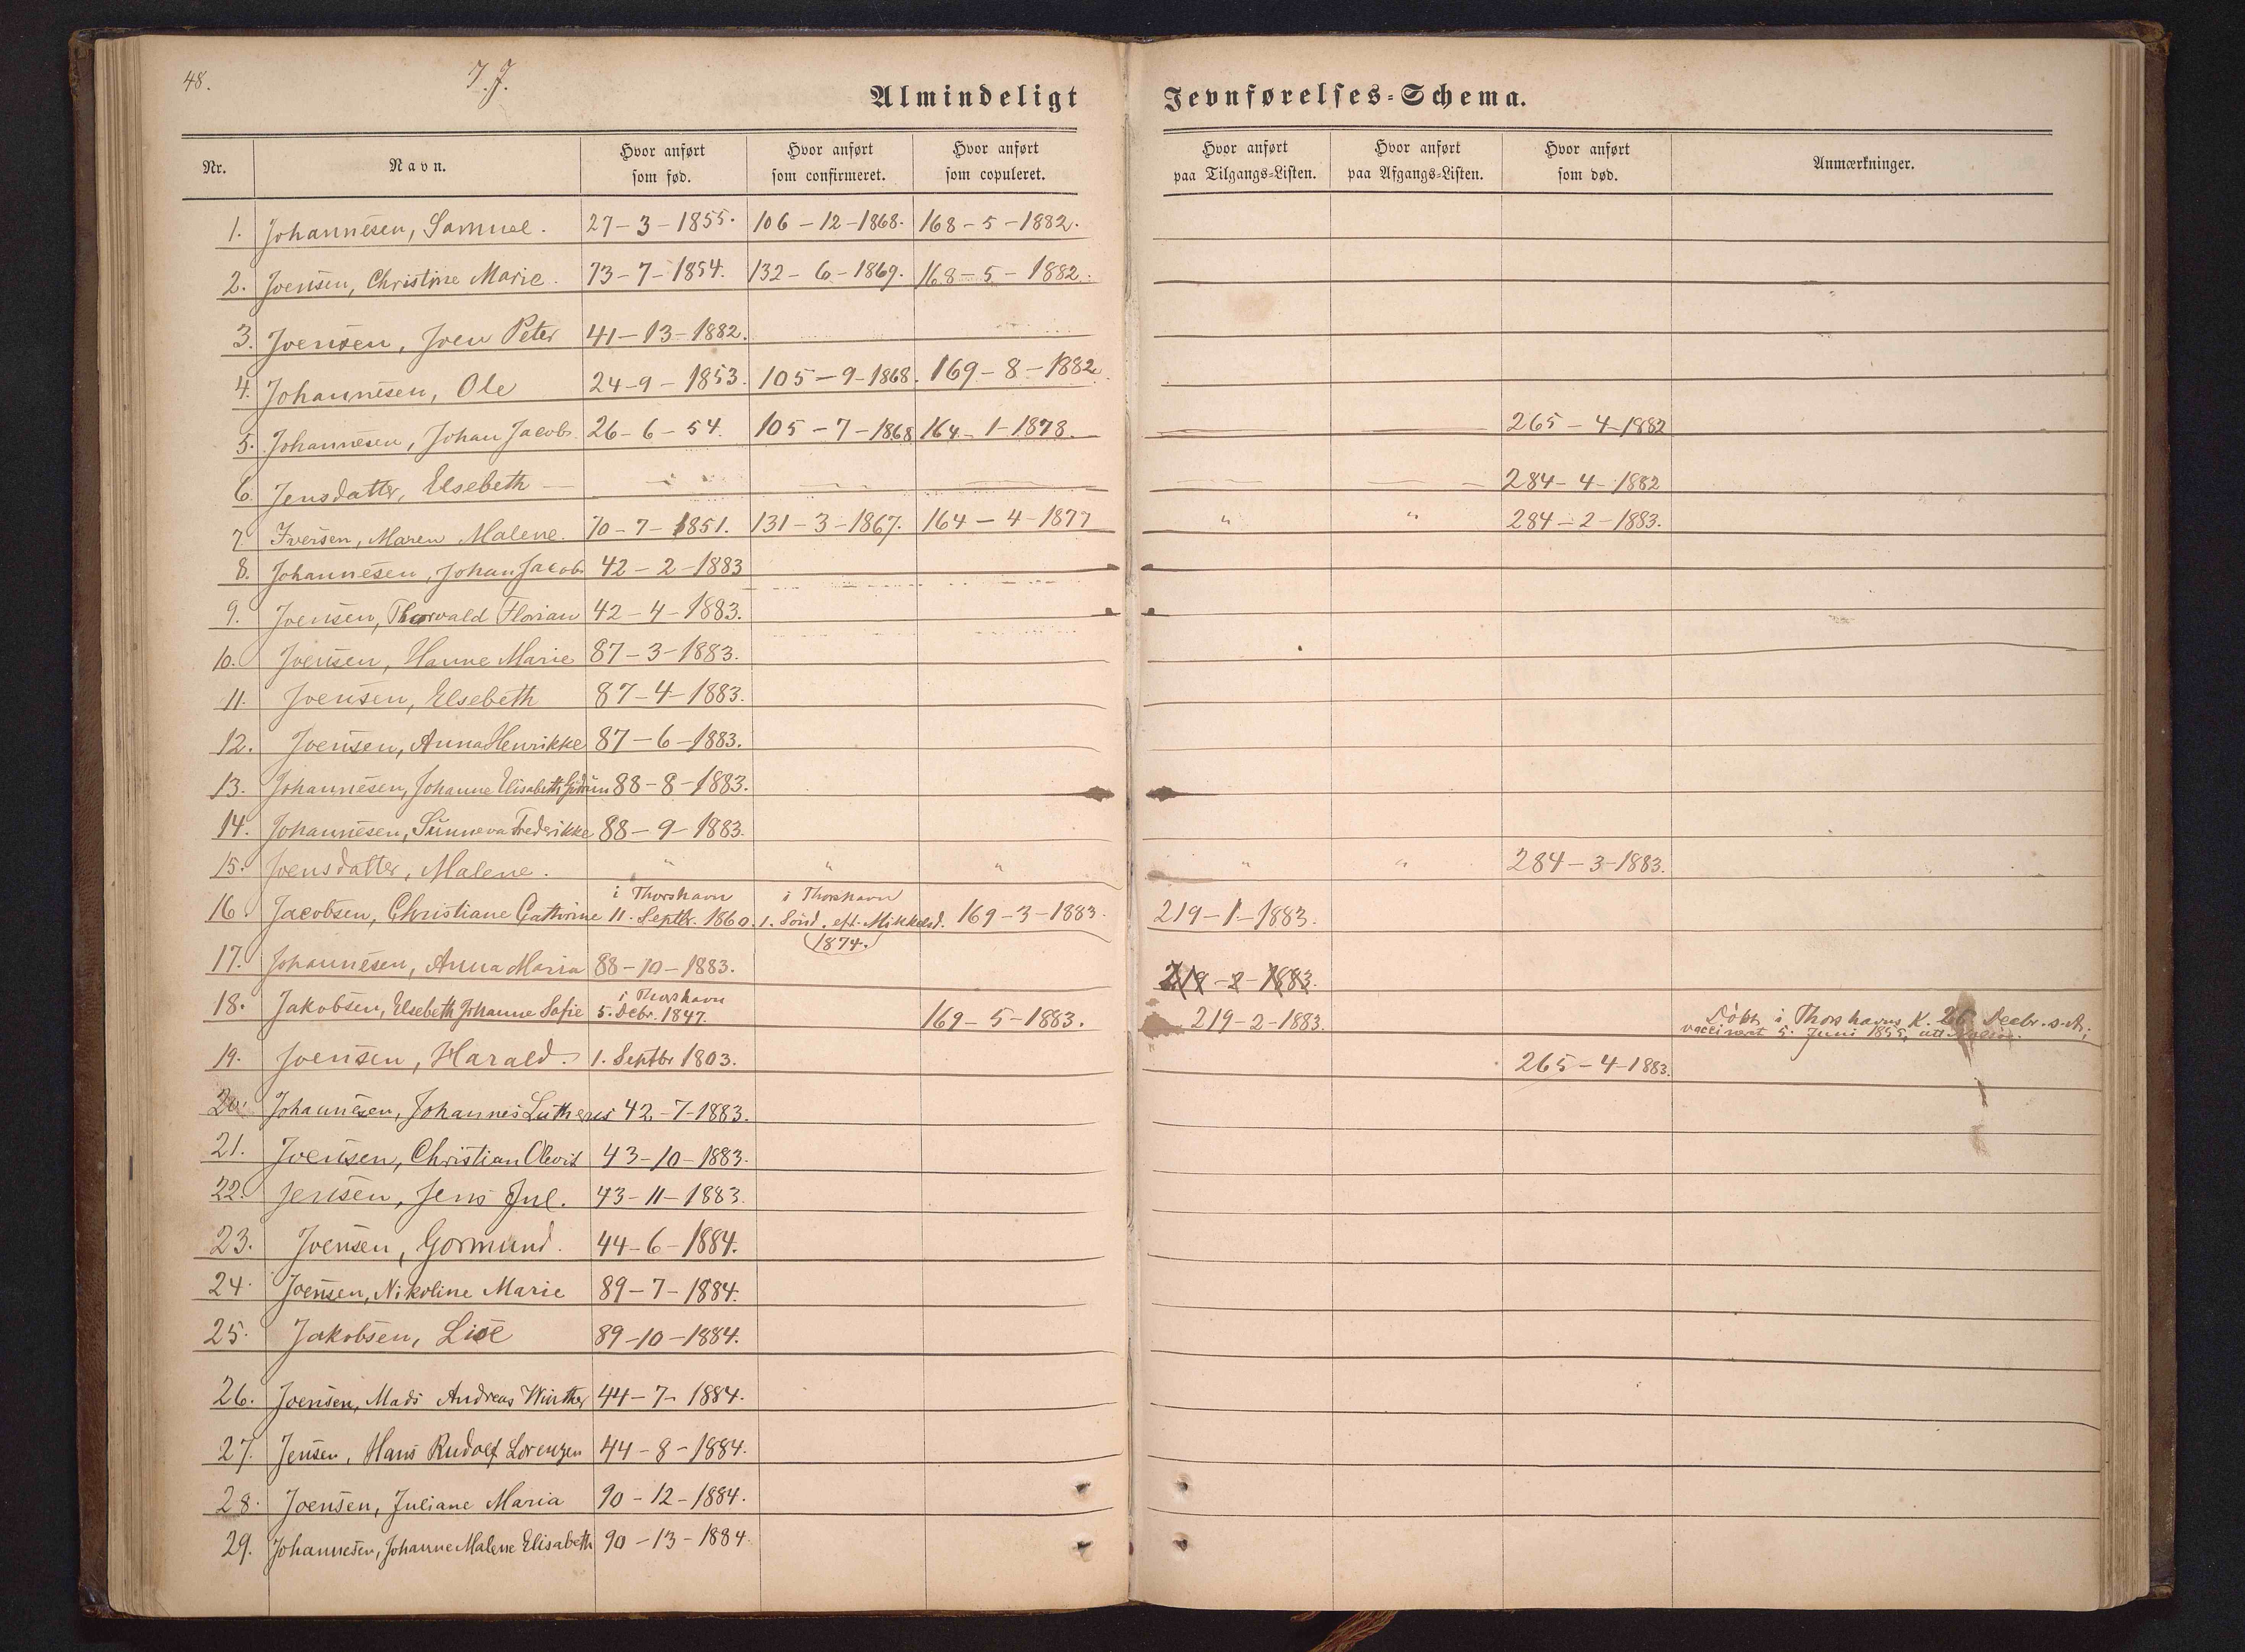 48.
I. J.
Almindeligt Jevnførelses-Schema.
Nr. Navn. Hvor anført som fød. Hvor anført som confirmeret. Hvor anført som copuleret. Hvor anført paa Tilgangs-Listen. Hvor anført paa Afgangs-Listen. Hvor anført som død. Anmærkninger.
1. Johannesen, Samuel. 27-3-1855. 106-12-1868. 168-5-1882.
2. Joensen, Christine Marie. 73-7-1854. 132-6-1869. 168-5-1882.
3. Joensen, Joen Peter 41-13-1882.
4. Johannesen, Ole 24-9-1853. 105-9-1868. 169-8-1882
5. Johannesen, Johan Jacob. 26-6-54. 105-7-1868 164-1-1878. 265-4-1882
6. Jensdatter, Elsebeth — 284-4-1882
7. Iversen, Maren Malene. 70-7-1851. 131-3-1867. 164-4-1877 " " 284-2-1883.
8. Johannesen, Johan Jacob 42-2-1883
9. Joensen, Thorvald Florian 42-4-1883.
10. Joensen, Hanne Marie 87-3-1883.
11. Joensen, Elsebeth 87-4-1883.
12. Joensen, Anna Henrikke 87-6-1883.
13. Johannesen, Johanne Elisabeth 88-8-1883.
14. Johannesen, Sunneva Frederikke 88-9-1883.
15. Joensdatter, Malene. " " " " " 284-3-1883.
i Thorshavn i Thorshavn
16. Jacobsen, Christiane Cathrine 11. Septbr. 1860. 1. Sønd. eft. Mikkelsd. 169-3-1883. 219-1-1883.
1874.
17. Johannesen, Anna Maria 88-10-1883. 219-2-1883.
i Thorshavn
18. Jakobsen, Elsebeth Johanne Sofie 5. Debr. 1847. 169-5-1883. 219-2-1883. Døbt i Thorshavns K. 26 Decbr. s. A.;
vaccineret 5. Juni 1855, att.
19. Joensen, Harald 1. Septbr 1803. 265-4-1883.
20. Johannesen, Johannes Lutherus 42-7-1883.
21. Joensen, Christian Olevit 43-10-1883.
22. Jensen, Jens Jul. 43-11-1883.
23. Joensen, Gormund. 44-6-1884.
24. Joensen, Nikoline Marie 89-7-1884.
25. Jakobsen, Lise 89-10-1884.
26. Joensen, Mads Andreas Winther 44-7-1884.
27. Jensen, Hans Rudolf Lorenzen 44-8-1884.
28. Joensen, Juliane Maria 90-12-1884.
29. Johannesen, Johanne Malene Elisabeth 90-13-1884.